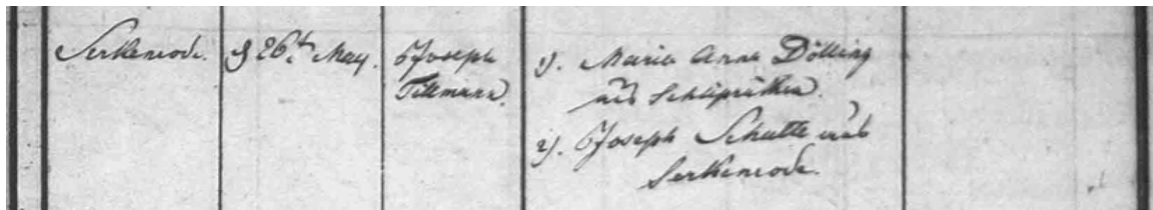 Serkenrode.
d 26t. May.
Joseph
Tillmann.
1). Maria Anna Dölling
aus Schliprüthen.
2). Joseph Schulte aus
Serkenrode.